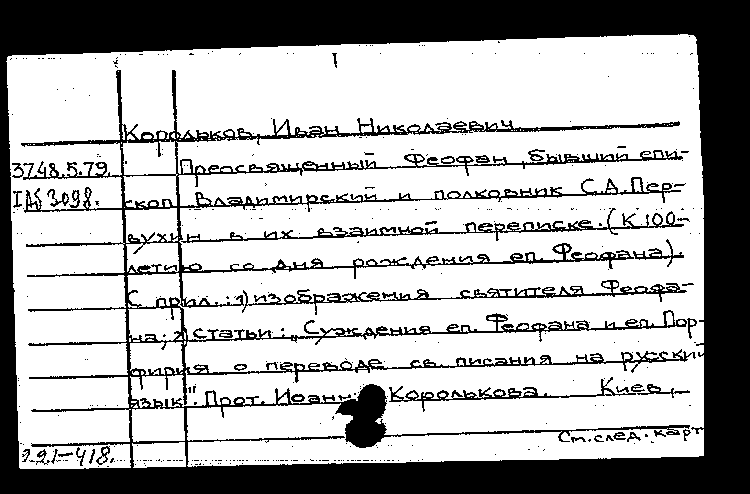 I
Корольков, Иван Николаевич
3748.5.79. Преосвященный Феофан, бывший епи-
скоп Владимирский и полковник С.А. Пер-
вухин в их взаимной переписке. (К 100-
летию со дня рождения еп. Феофана).
С прил.: 1) изображения святителя Феофа-
на; 2) статьи: „Суждения еп. Феофана и еп. Пор-
фирия о переводе св. писания на русский
язык". Прот. Иоанна Королькова. Киев,
См. след. карт
221-418.